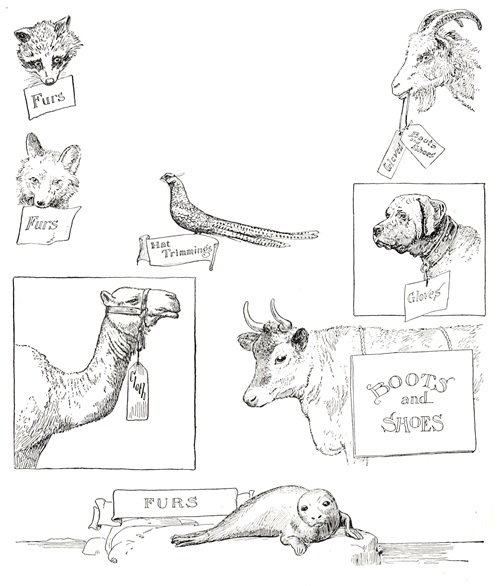 Furs
Gloves
Boots
Shoes
Furs
Hat
Trimmings
Gloves
Cloth
BOOTS
and
SHOES
FURS